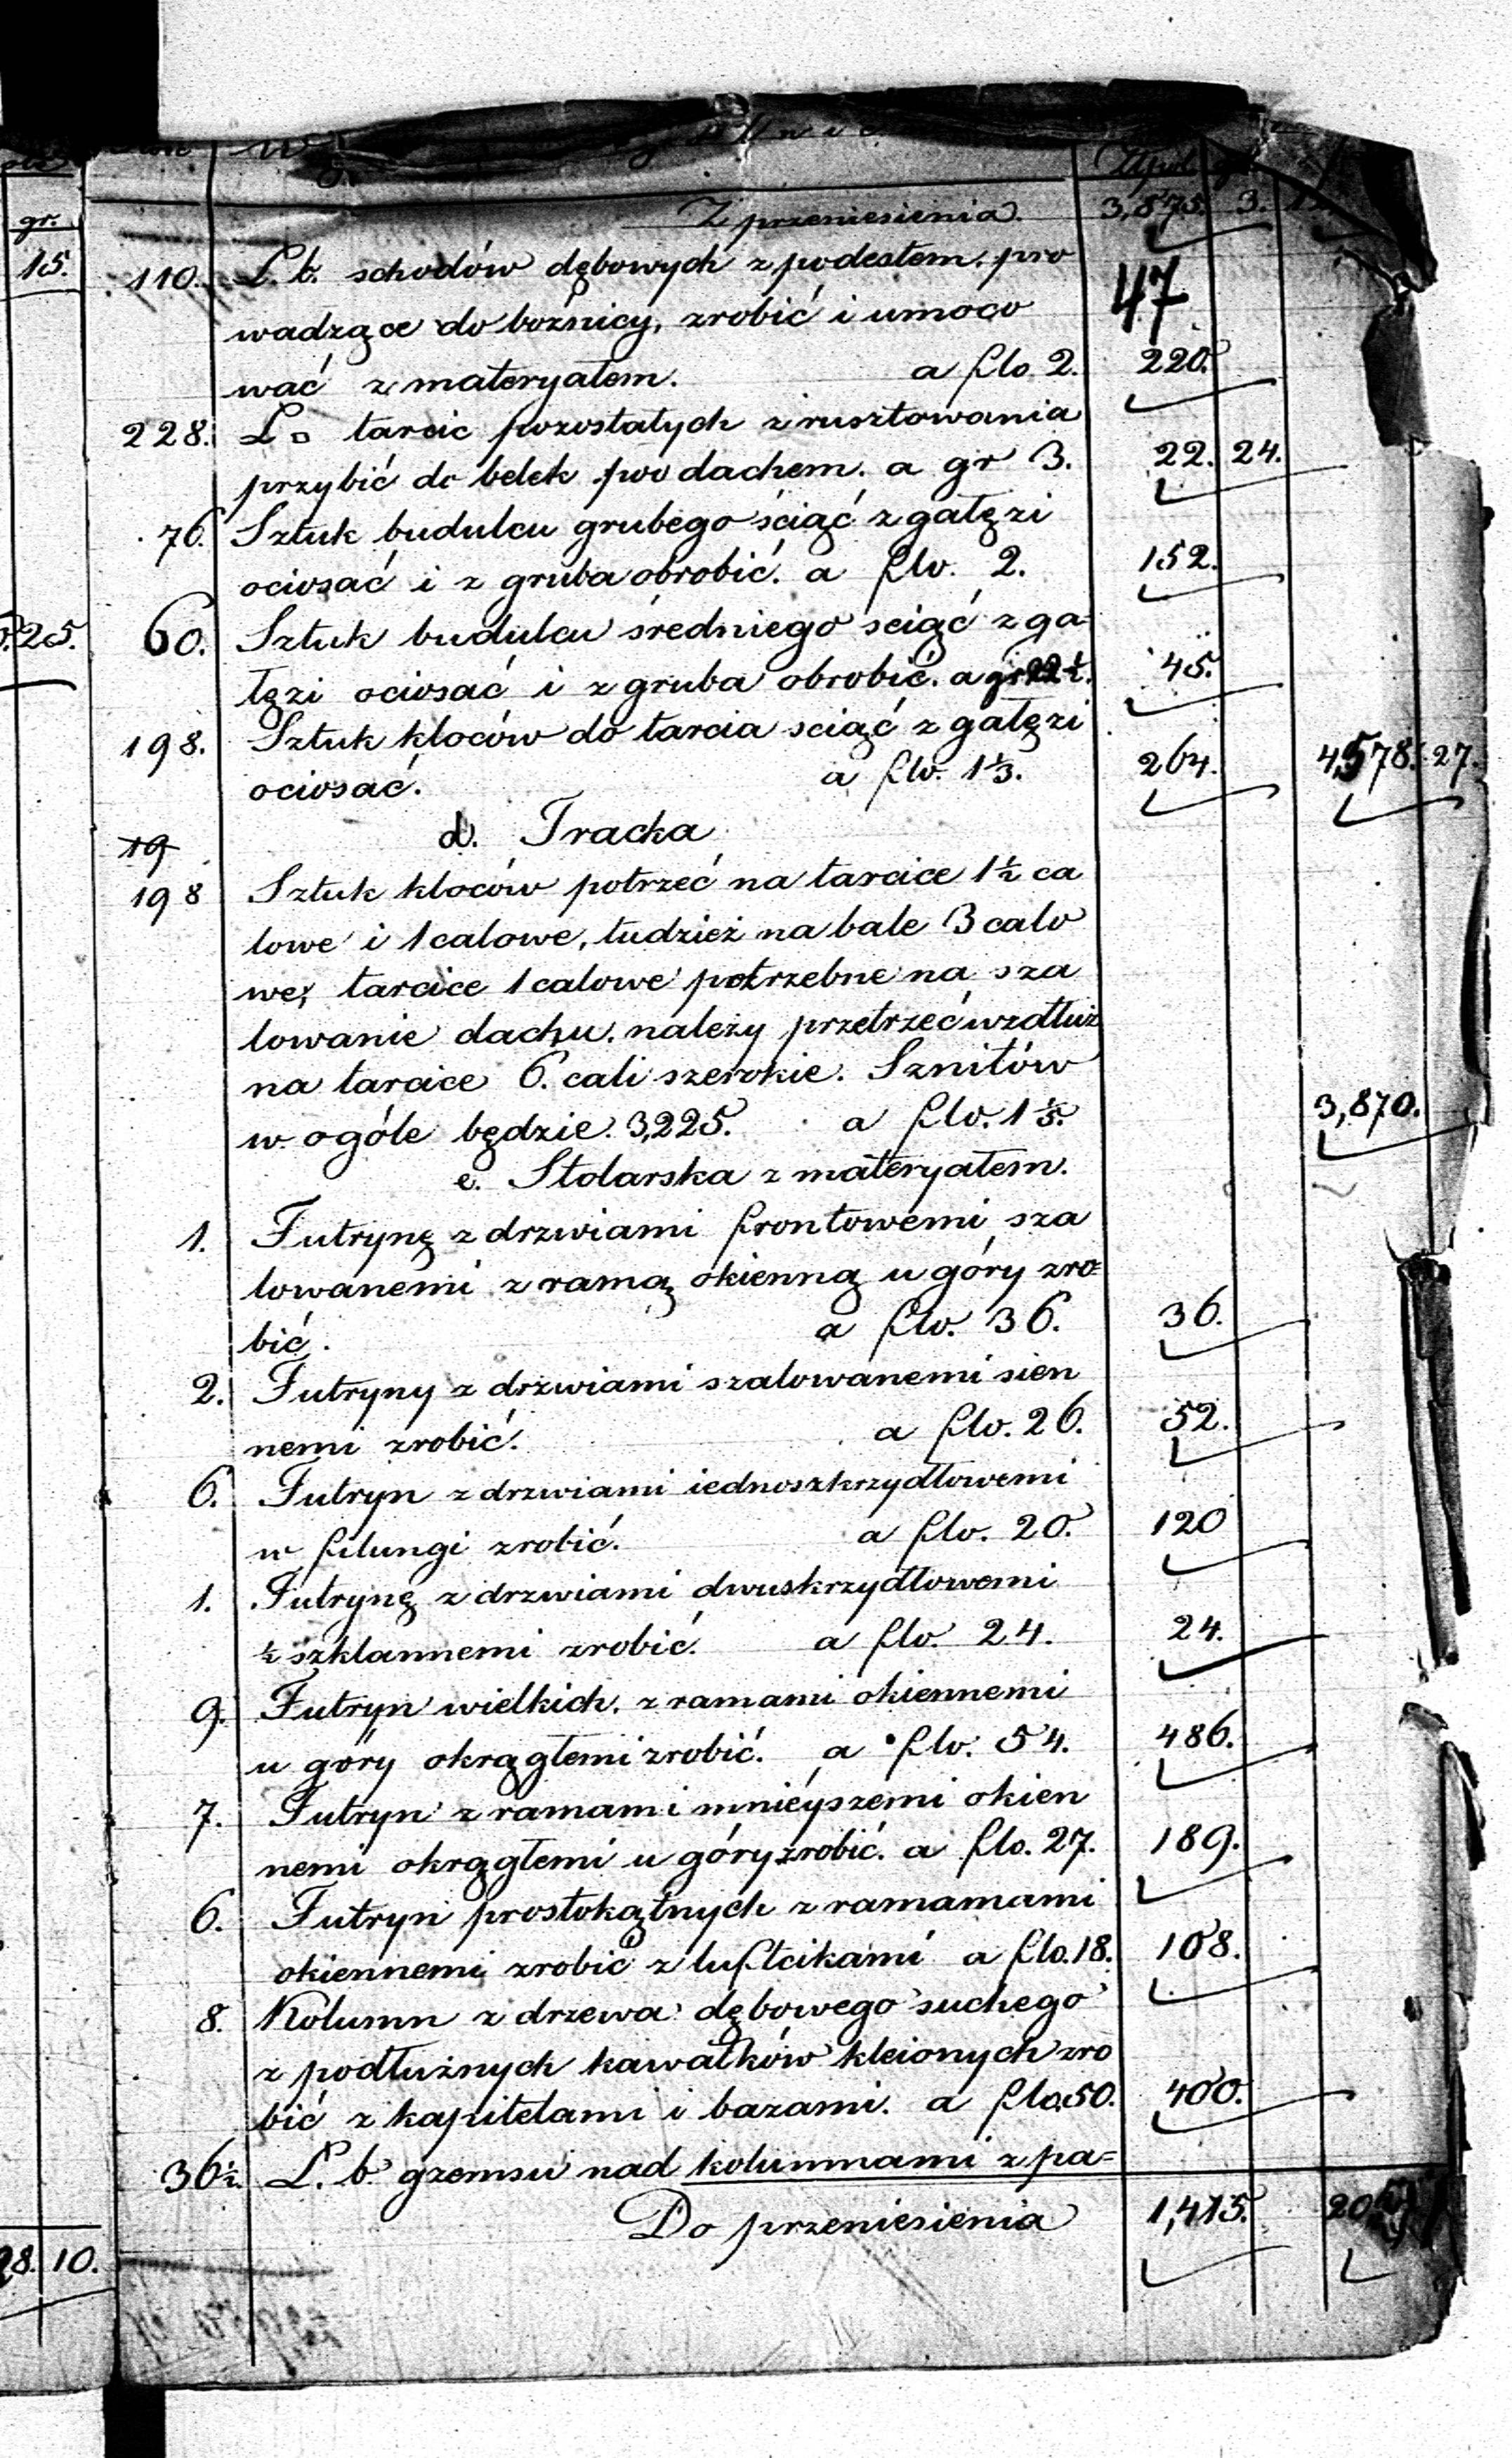 gr.
15.
25.
28. 10.
Złpol. gr.
Z przeniesienia. 3,875. 3.
110. L. b. schodów dębowych z podestem, pro
wadzące do bożnicy, zrobić i umoco 47
wać z materyałem. a flo 2. 220.
228. L □ tarcic pozostałych z rusztowania
przybić do belek pod dachem. a gr 3. 22. 24.
76. Sztuk budulcu grubego ściąć z gałęzi
ociosać i z gruba obrobić. a flo. 2. 152.
60. Sztuk budulcu średniego sciąć z ga-
łęzi ociosać i z gruba obrobić. a gr 22½. 45.
198. Sztuk kloców do tarcia sciąć z gałęzi
ociosać. a flo. 1⅓. 264. 4,578. 27.
d. Tracka
19
198 Sztuk kloców potrzeć na tarcice 1½ ca
lowe i 1 calowe, tudzież na bale 3 calo
we, tarcice 1 calowe potrzebne na sza
lowanie dachu, należy przetrzeć wzdłuż
na tarcice 6. cali szerokie. Sznitów
w ogóle będzie. 3,225. a flo. 1⅕. 3,870.
e. Stolarska z materyałem.
1. Futrynę z drzwiami frontowemi sza
lowanemi z ramą okienną u góry zro=
bić. a flo. 36. 36.
2. Futryny z drzwiami szalowanemi sien
nemi zrobić. a flo. 26. 52.
6. Futryn z drzwiami iednoszkrzydłowemi
w filungi zrobić. a flo. 20. 120
1. Futrynę z drzwiami dwuskrzydłowemi
½ szklannemi zrobić. a flo. 24. 24.
9. Futryn wielkich, z ramami okiennemi
u góry okrągłemi zrobić. a flo. 54. 486.
7. Futryn z ramami mnieyszemi okien
nemi okrągłemi u góry zrobić. a flo. 27. 189.
6. Futryn prostokątnych z ramamami
okiennemi zrobić z luftcikami a flo. 18. 108.
8. Kolumn z drzewa dębowego suchego
z podłużnych kawałków kleionych zro
bić z kapitelami i bazami. a flo. 50. 400.
36½. L. b. gzemsu nad kolumnami z pa=
Do przeniesienia 1,415.